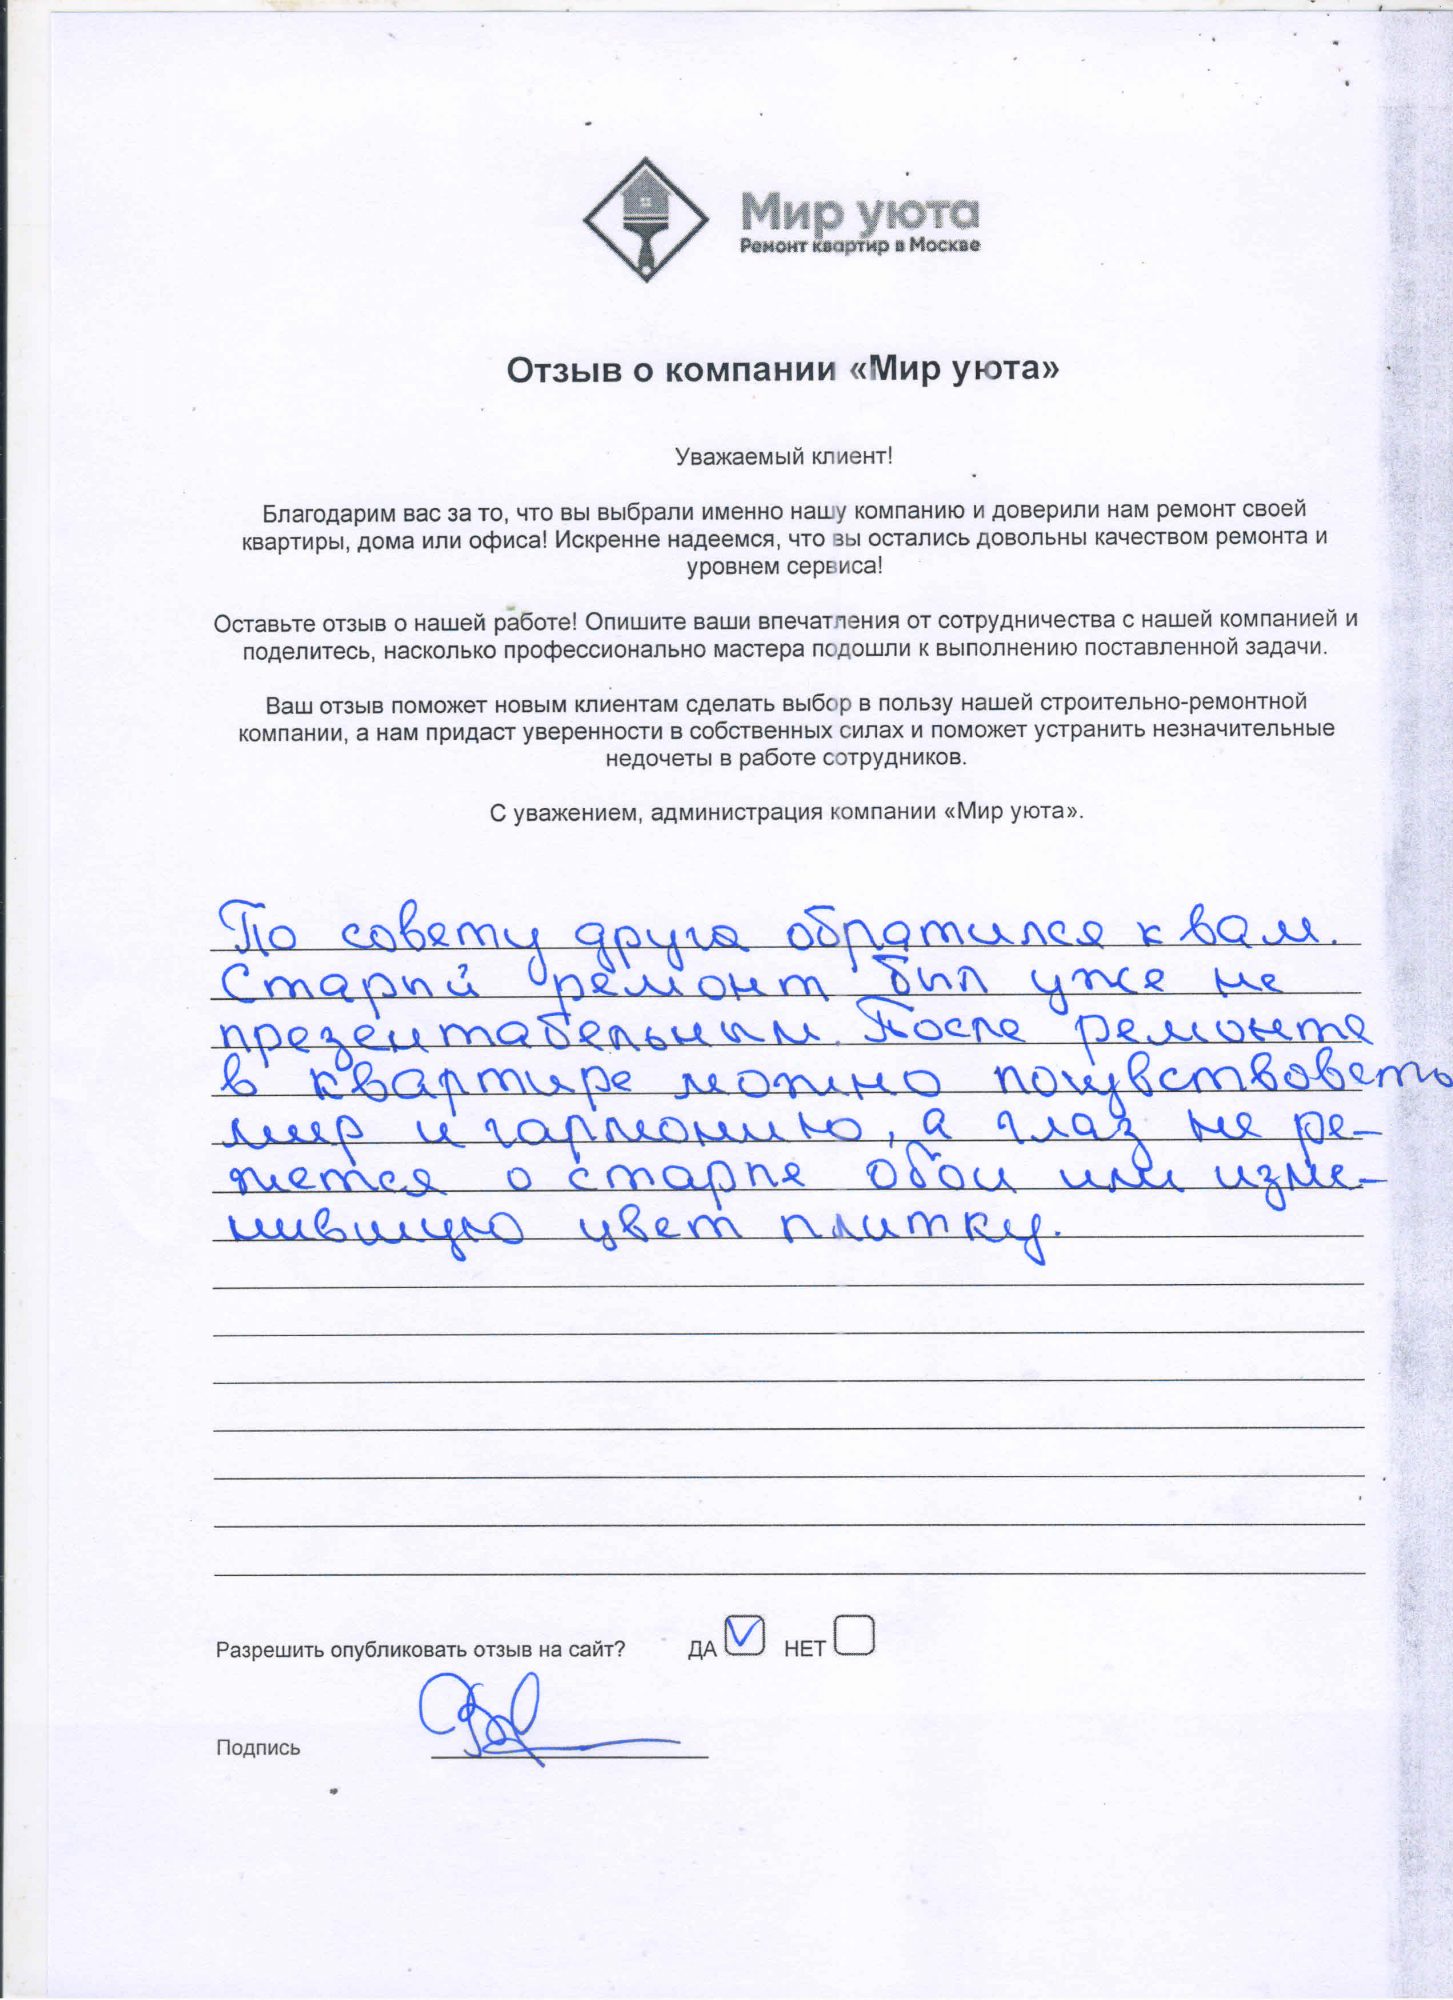 Мир уюта
Ремонт квартир в Москве
Отзыв о компании «Мир уюта»
Уважаемый клиент!
Благодарим вас за то, что вы выбрали именно нашу компанию и доверили нам ремонт своей
квартиры, дома или офиса! Искренне надеемся, что вы остались довольны качеством ремонта и
уровнем сервиса!
Оставьте отзыв о нашей работе! Опишите ваши впечатления от сотрудничества с нашей компанией и
поделитесь, насколько профессионально мастера подошли к выполнению поставленной задачи.
Ваш отзыв поможет новым клиентам сделать выбор в пользу нашей строительно-ремонтной
компании, а нам придаст уверенности в собственных силах и поможет устранить незначительные
недочеты в работе сотрудников.
С уважением, администрация компании «Мир уюта».
По совету друга обратился к вам.
Старый ремонт был уже не
презентабельным. После ремонта
в квартире можно почувствовать
мир и гармонию, а глаз не ре-
жется о старые обои или изме-
нившую цвет плитку.
Разрешить опубликовать отзыв на сайт? ДА НЕТ
Подпись